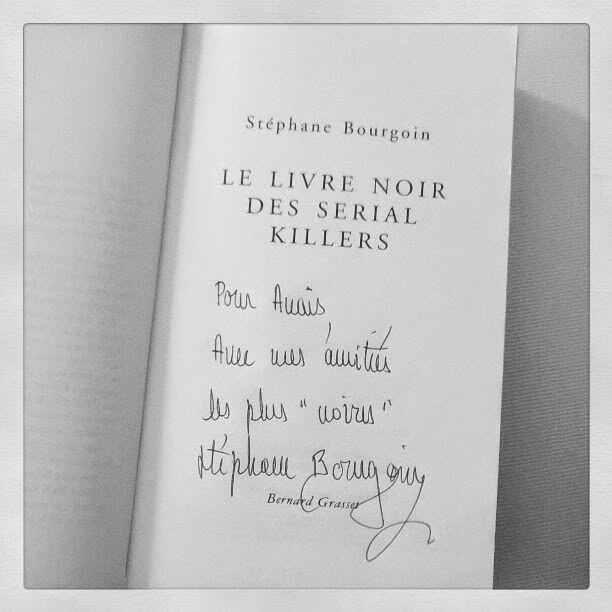 Stéphane Bourgoin
LE LIVRE NOIR
DES SERIAL
KILLERS
Pour Anaïs
Avec mes amitiés
les plus "noires"
Stéphane Bourgoin
Bernard Grasset